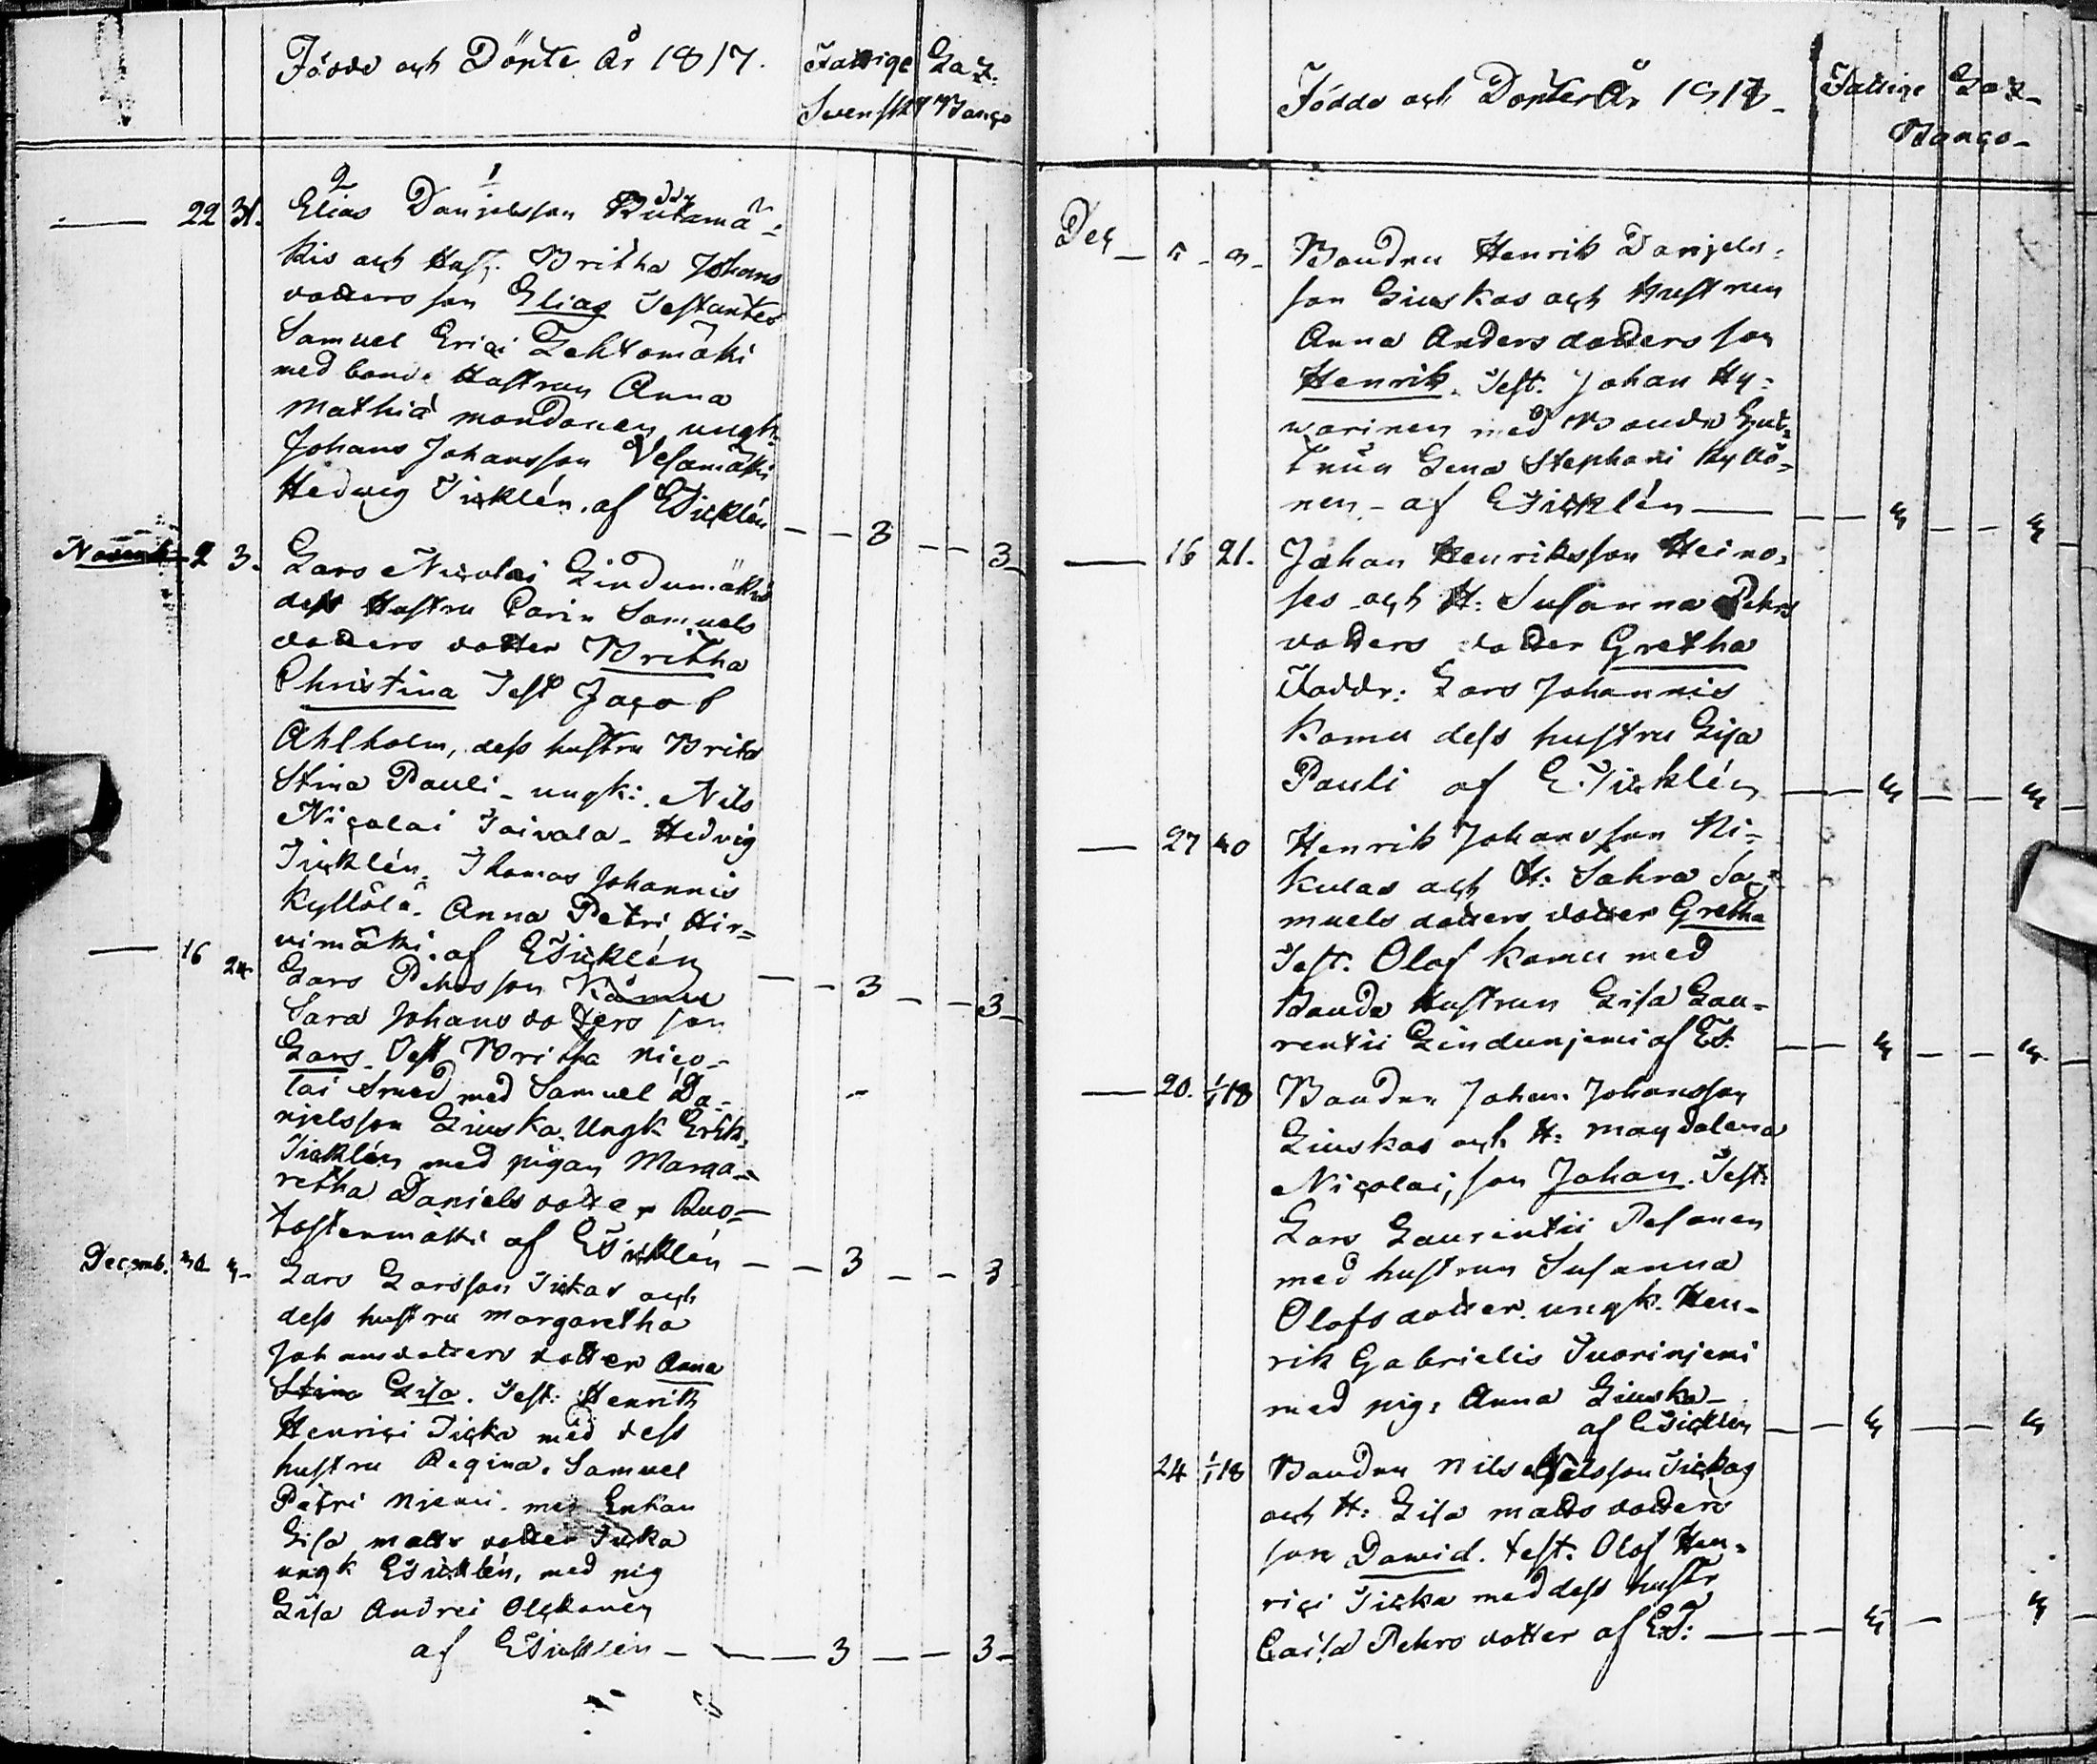 Födde och Döpte År 1817. Fattige Cas.
Svenskt Banço
2 1
22 31. Elias Danjelsson
kis och Hust. Britha Johans
dotters son Elias Testantes
Samuel Eriçi Lehtomäki
med bond. Hustrun Anna
Mathiæ mondonen ungk.
Johans Johansson Vesamäki
Hedwig Ticklén. af ETicklén — — 3 — — 3 —
Novemb. 2 3. Lars Niçolai Lindumäki
dess Hustru Carin Samuels
dotters dotter Britha
Christina Test Jaçob
Ahlholm, dess hustru Brita
Stina Pauli - ungk: Nils
Niçolai Toivala - Hedvig
Ticklén. Thomas Johannis
Kyllölä. Anna Petri Hir=
vimäki. af ETicklén — — 3 — — 3 —
— 16 24. Lars Pehrsson Kämu
Sara Johans dotters son
Lars. Test Britha niço-
lai Smed med Samuel Da-
njelsson Liuska. Ungk. Erik
Ticklén med pigan Marga-
retha Daniels dotter Ruo-
tostenmäki af ETicklén — — 3 — — 3
Decemb. 3. Lars Larsson Tickas och
dess hustru Margaretha
Johansdotters dotter Anna
Stina Lisa. Test: Henrik
Henriçi Ticka med dess
hustru Regina. Samuel
Petri Njemi. med Enkan
Lisa matts dotter Ticka
ungk ETicklén, med pig
Lisa Andrei Olçkonen
af ETicklén — — — 3 — — 3 —
Födde och Döpte År 1817 - Fattige Cas-
Banço -
Deç — 5 - 9 - Bonden Henrik Danjels=
son Liuskas och Hustrun
Anna Anders dotters son
Henrik. Test. Johan Hy=
warinen med Bonde Hust=
trun Lena Stephani Kyllö=
nen - af ETicklén — — — 3 — — 3
— 16 21. Johan Henriksson Heino=
ses och H: Susanna Pehrs
dotters dotter Gretha
Faddr: Lars Johannis
Komu dess hustru Lisa
Pauli af E.Ticklén — — 3 — — 3 —
— 27 30 Henrik Johansson Ni=
kulas och H: Sahra Sa=
muels dotters dotter Gretha
Test. Olof Komu med
Bonde Hustrun Lisa Lau-
rentii Lindunjemi af ET. — — 3 — — 3
— 20. 1/1 18 Bonden Johan Johansson
Liuskas och H: Magdalena
Niçolai, son Johan. Test.
Lars Laurentii Pesonen
med hustrun Susanna
Olofsdotter. ungk. Hen-
rik Gabrielis Tuorinjemi
med pig: Anna Liuska -
af ETicklén — — 3 — — 3
24 1/1 18 Bonden Nils Nilsson Tickas
och H: Lisa matts dotters
son Dawid. test. Olof Hen-
riçi Ticka med dess hustr
Caisa Pehrs dotter af ET: — — — 3 — 3